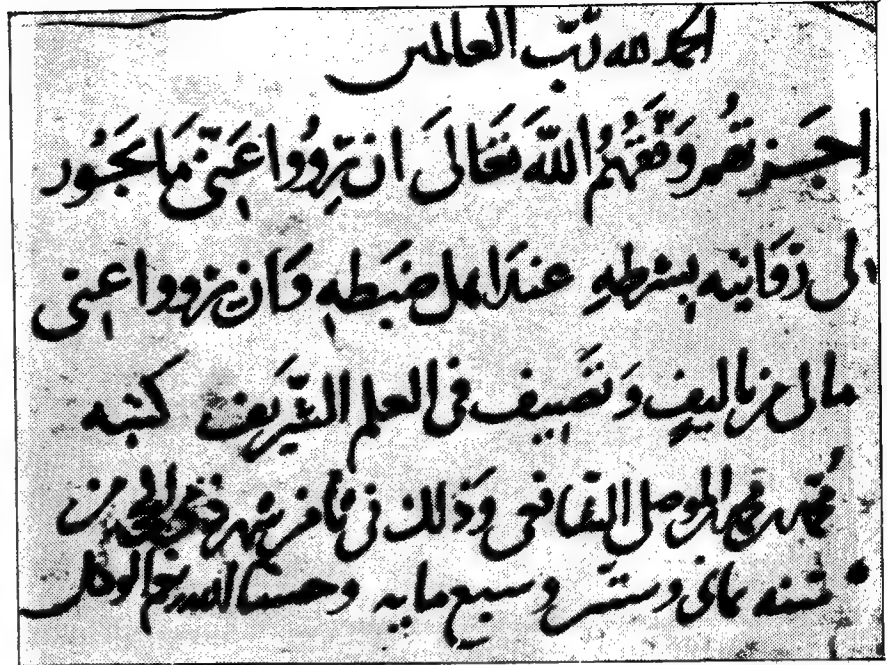 الحمد لله رب العالمين
اجزتهم وفقهم الله تعالى ان يرووا عني ما يجوز
لي روايته بشرطه عند اهل ضبطه وان يرووا عني
مالي من تاليف وتصنيف في العلم الشريف كتبه
محمد بن محمد الموصلي الشافعي وذلك في ثامن شهر ذي الحجة من
سنه ثمان وستين وسبع مايه وحسبنا الله ونعم الوكيل